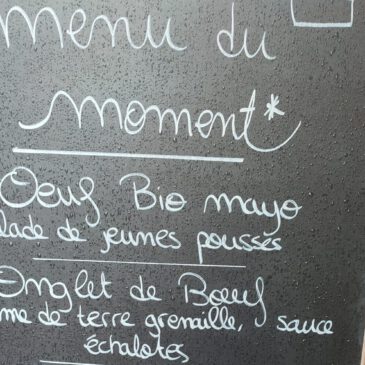 menu du
moment*
Oeuf Bio mayo
lade de jeunes pousses
Onglet de Boeuf
me de terre grenaille, sauce
échalotes